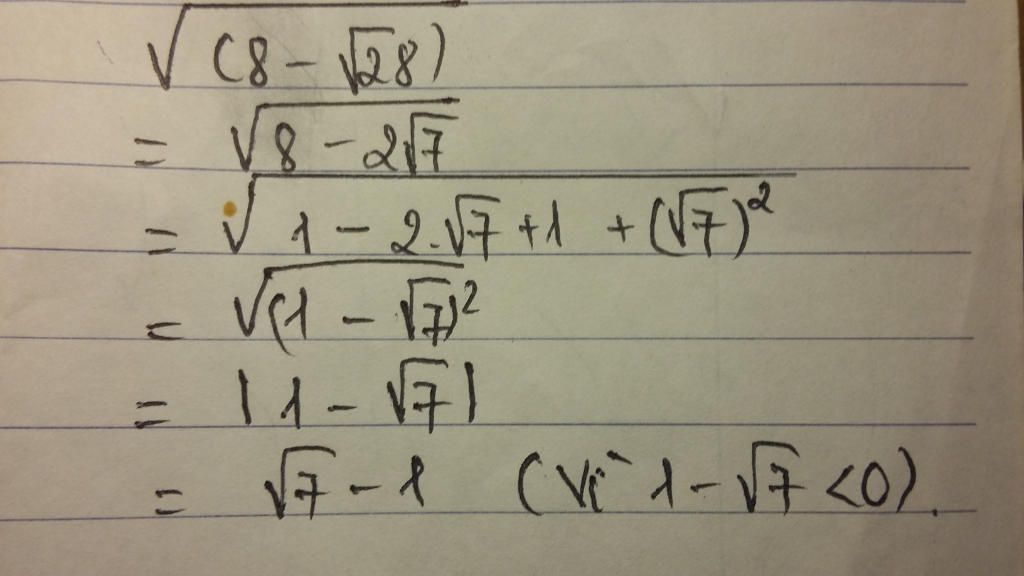 √(8 - √28)
= √8 - 2√7
= √1 - 2.√7 + 1 + (√7)²
= √(1 - √7)²
= |1 - √7|
= √7 - 1 (Vì 1 - √7 < 0).